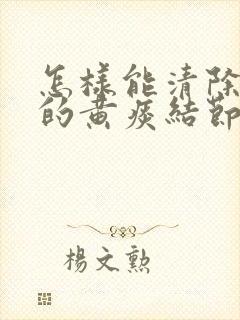 怎樣能清除
的黃痰結節
楊文勳